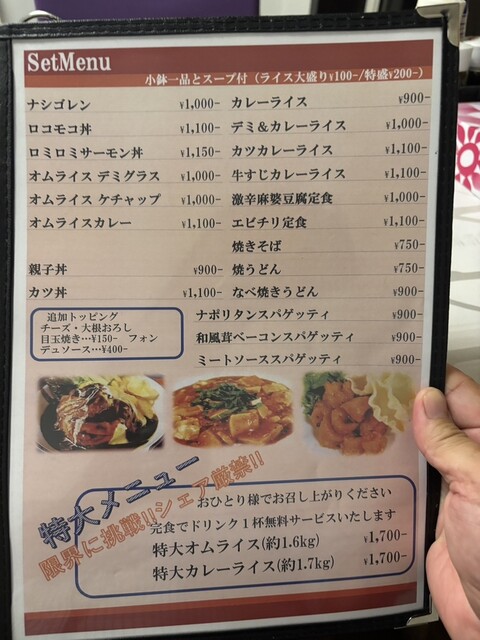 SetMenu
小鉢一品とスープ付（ライス大盛り¥100-/特盛¥200-）
ナシゴレン ¥1,000-
ロコモコ丼 ¥1,100-
ロミロミサーモン丼 ¥1,150-
オムライス デミグラス ¥1,000-
オムライス ケチャップ ¥1,000-
オムライスカレー ¥1,100-
親子丼 ¥900-
カツ丼 ¥1,100-
カレーライス ¥900-
デミ＆カレーライス ¥1,000-
カツカレーライス ¥1,100-
牛すじカレーライス ¥1,100-
激辛麻婆豆腐定食 ¥1,000-
エビチリ定食 ¥1,100-
焼きそば ¥750-
焼うどん ¥750-
なべ焼きうどん ¥900-
ナポリタンスパゲッティ ¥900-
和風茸ベーコンスパゲッティ ¥900-
ミートソーススパゲッティ ¥900-
追加トッピング
チーズ・大根おろし
目玉焼き…¥150- フォン
デュソース…¥400-
特大メニュー
限界に挑戦!!シェア厳禁!!
おひとり様でお召し上がりください
完食でドリンク１杯無料サービスいたします
特大オムライス(約1.6kg) ¥1,700-
特大カレーライス(約1.7kg) ¥1,700-